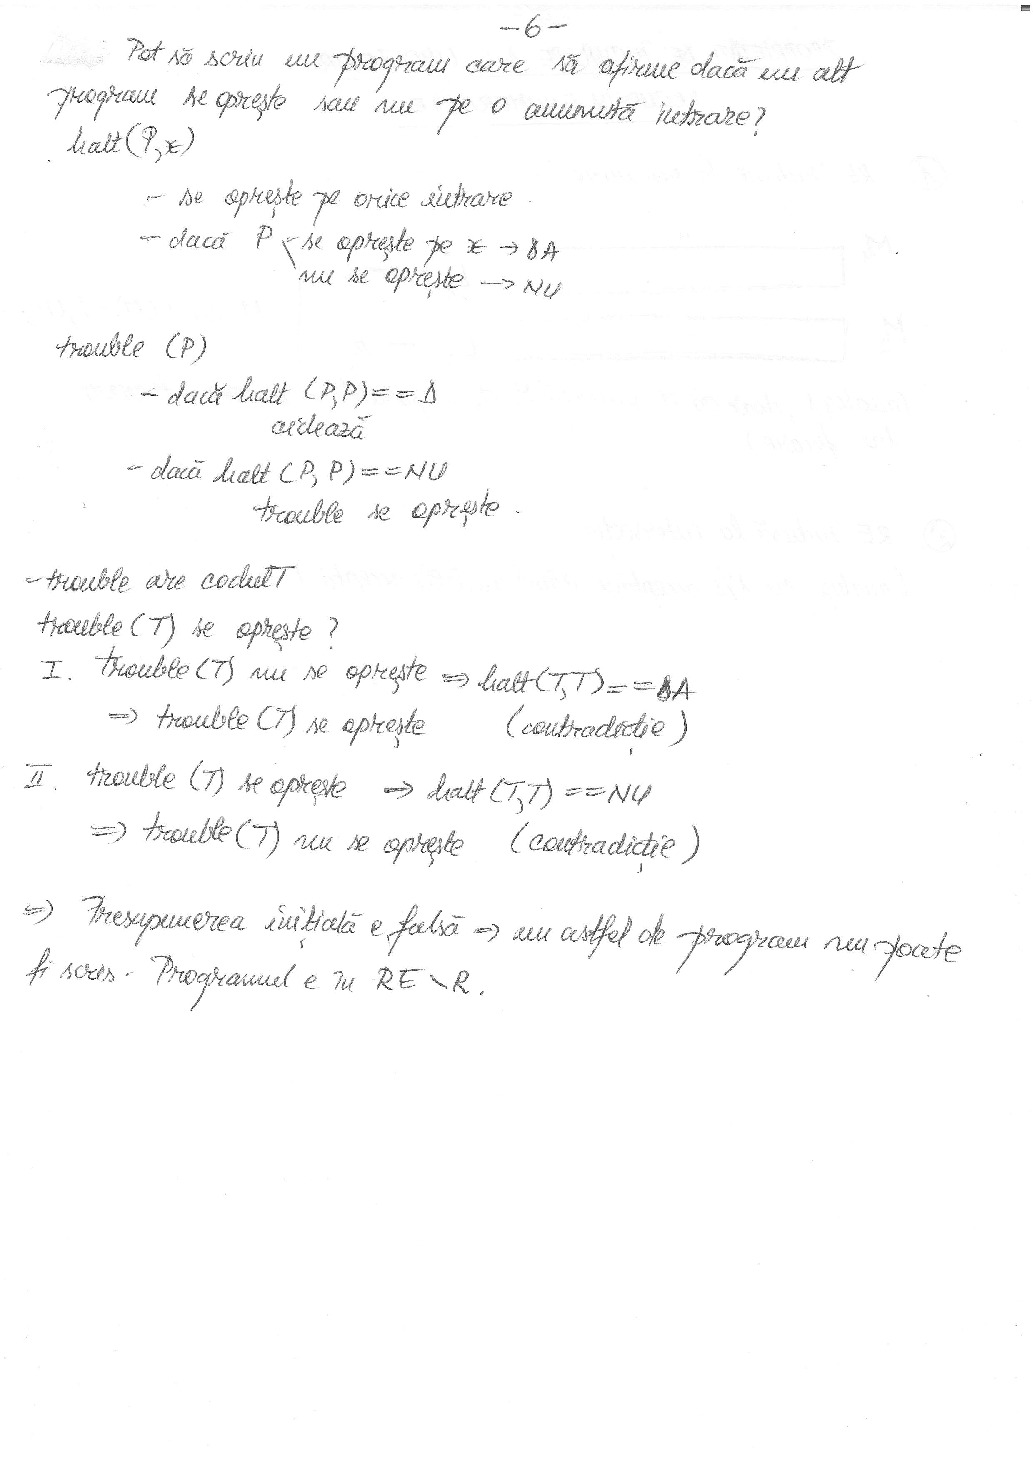 -6-
Pot să scriu un program care să afirme dacă un alt
program se oprește sau nu pe o anumită intrare?
halt(P,x)
- se oprește pe orice intrare
- dacă P se oprește pe x → DA
nu se oprește → NU
trouble (P)
- dacă halt (P,P) == D
ciclează
- dacă halt (P,P) == NU
trouble se oprește.
- trouble are codul T
trouble(T) se oprește?
I. trouble(T) nu se oprește => halt(T,T) == DA
=> trouble(T) se oprește (contradicție)
II. trouble (T) se oprește => halt(T,T) == NU
=> trouble(T) nu se oprește (contradicție)
=> Presupunerea inițială e falsă => un astfel de program nu poate
fi scris. Programul e în RE \ R.